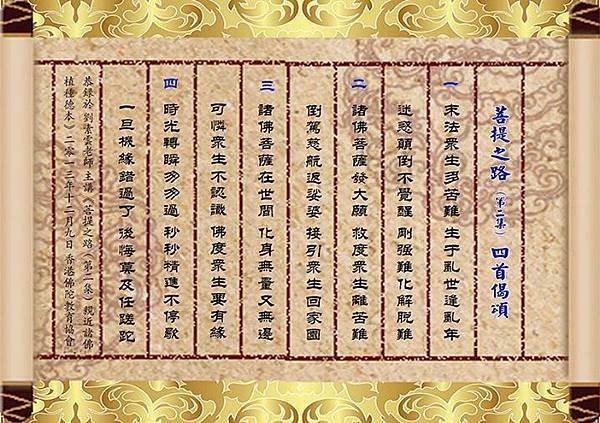 菩提之路（第二集）四首偈頌
一 末法眾生多苦難 生于亂世逢亂年
迷惑顛倒不覺醒 剛强難化解脫難
二 諸佛菩薩發大願 救度眾生離苦難
倒駕慈航返娑婆 接引眾生回家園
三 諸佛菩薩在世間 化身無量又無邊
可憐眾生不認識 佛度眾生要有緣
四 時光轉瞬匆匆過 秒秒精進不停歇
一旦機緣錯過了 後悔莫及任蹉跎
恭錄於 劉素雲老師 主講《菩提之路（第二集）親近諸佛
植種德本》二零一三年十二月九日 香港佛陀教育協會